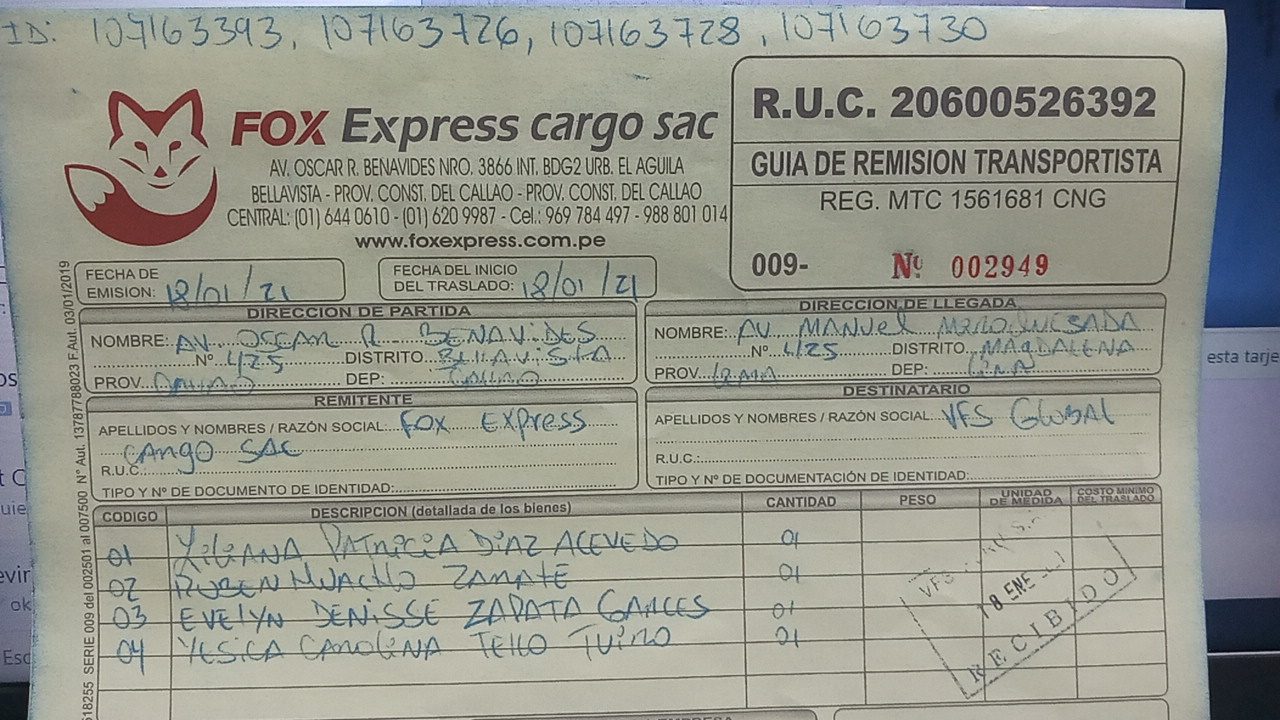 ID: 107163393, 107163726, 107163728, 107163730
FOX Express cargo sac
AV. OSCAR R. BENAVIDES NRO. 3866 INT. BDG2 URB. EL AGUILA
BELLAVISTA - PROV. CONST. DEL CALLAO - PROV. CONST. DEL CALLAO
CENTRAL: (01) 644 0610 - (01) 620 9987 - Cel.: 969 784 497 - 988 801 014
www.foxexpress.com.pe
R.U.C. 20600526392
GUIA DE REMISION TRANSPORTISTA
REG. MTC 1561681 CNG
009- Nº 002949
FECHA DE EMISION: 18/01/21
FECHA DEL INICIO DEL TRASLADO: 18/01/21
DIRECCION DE PARTIDA
NOMBRE: AV. OSCAR R BENAVIDES
Nº 425 DISTRITO BELLAVISTA
PROV. CALLAO DEP: CALLAO
DIRECCION DE LLEGADA
NOMBRE: AV. MANUEL
Nº 425 DISTRITO MAGDALENA
PROV. LIMA DEP: LIMA
REMITENTE
APELLIDOS Y NOMBRES / RAZÓN SOCIAL: FOX EXPRESS
CARGO SAC
R.U.C.
TIPO Y Nº DE DOCUMENTO DE IDENTIDAD:
DESTINATARIO
APELLIDOS Y NOMBRES / RAZÓN SOCIAL: VFS GLOBAL
R.U.C.:
TIPO Y Nº DE DOCUMENTACIÓN DE IDENTIDAD:
CODIGO DESCRIPCION (detallada de los bienes) CANTIDAD PESO UNIDAD DE MEDIDA COSTO MINIMO DEL TRASLADO
01 LILIANA PATRICIA DIAZ ACEVEDO 01
02 RUBEN HUACHO ZARATE 01
03 EVELYN DENISSE ZAPATA GARCES 01
04 YESICA CAROLINA TELLO 01
VFS
18 ENE
RECIBIDO
SERIE 009 del 002501 al 007500 N° Aut. 13787788023 F.Aut. 03/01/2019
esta tarje